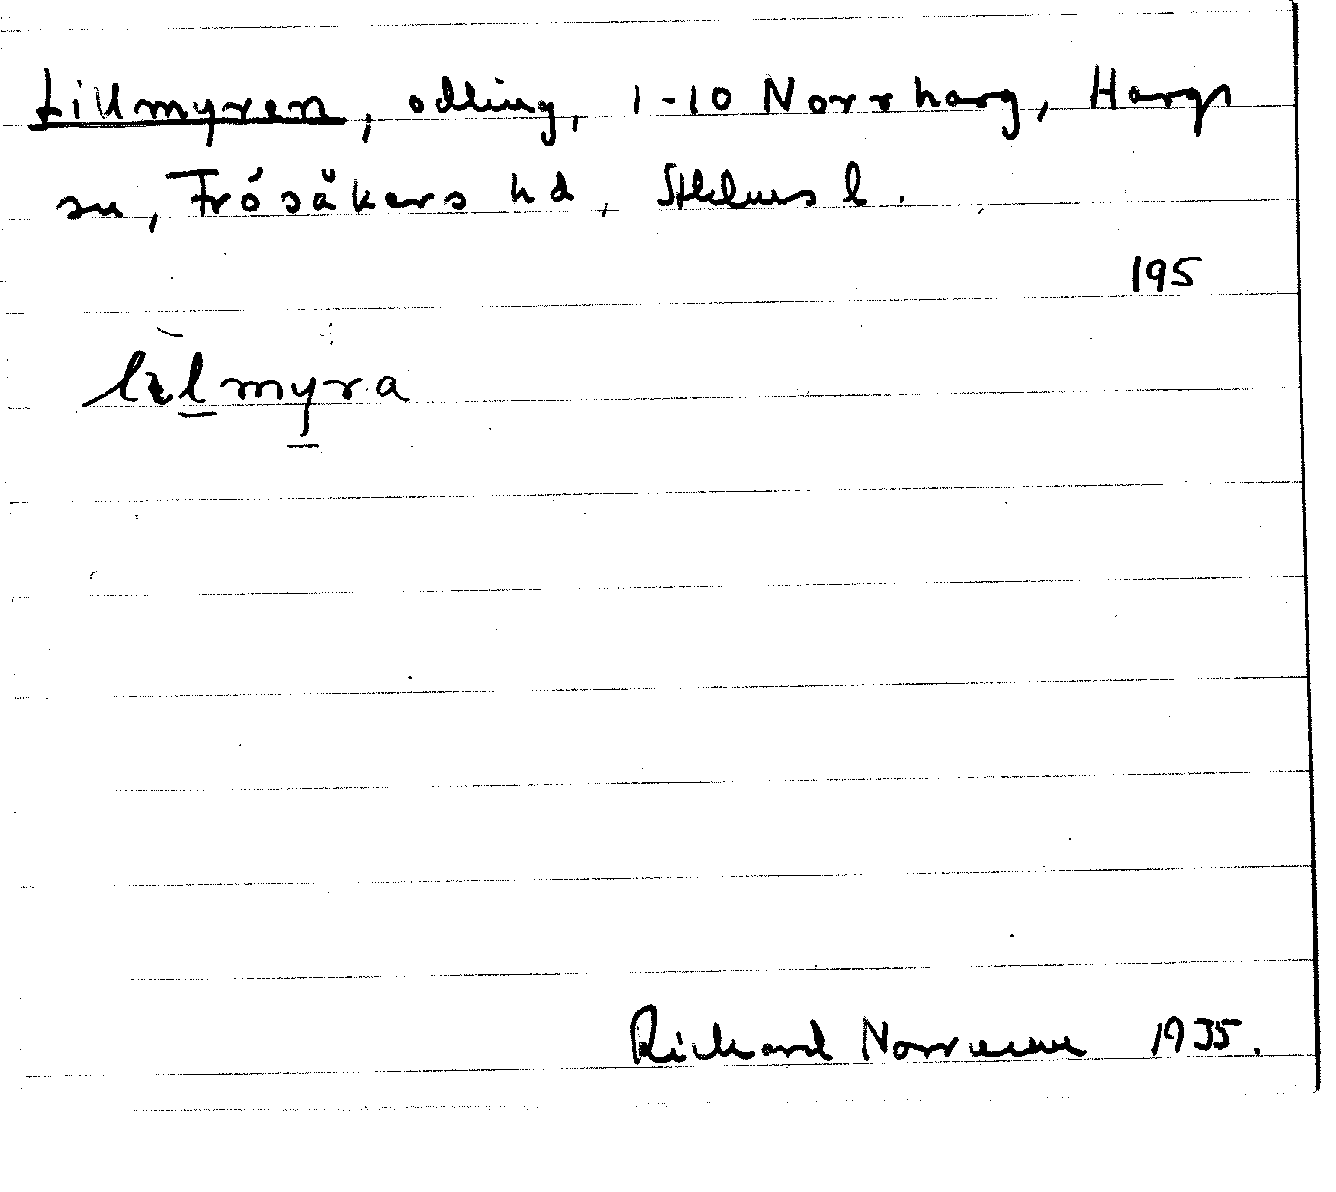 Lillmyren, odling, 1-10 Norrharg, Hargs
sn, Frösåkers hd, Sthlms l.
195
lilmyra
Richard Norrman 1935.